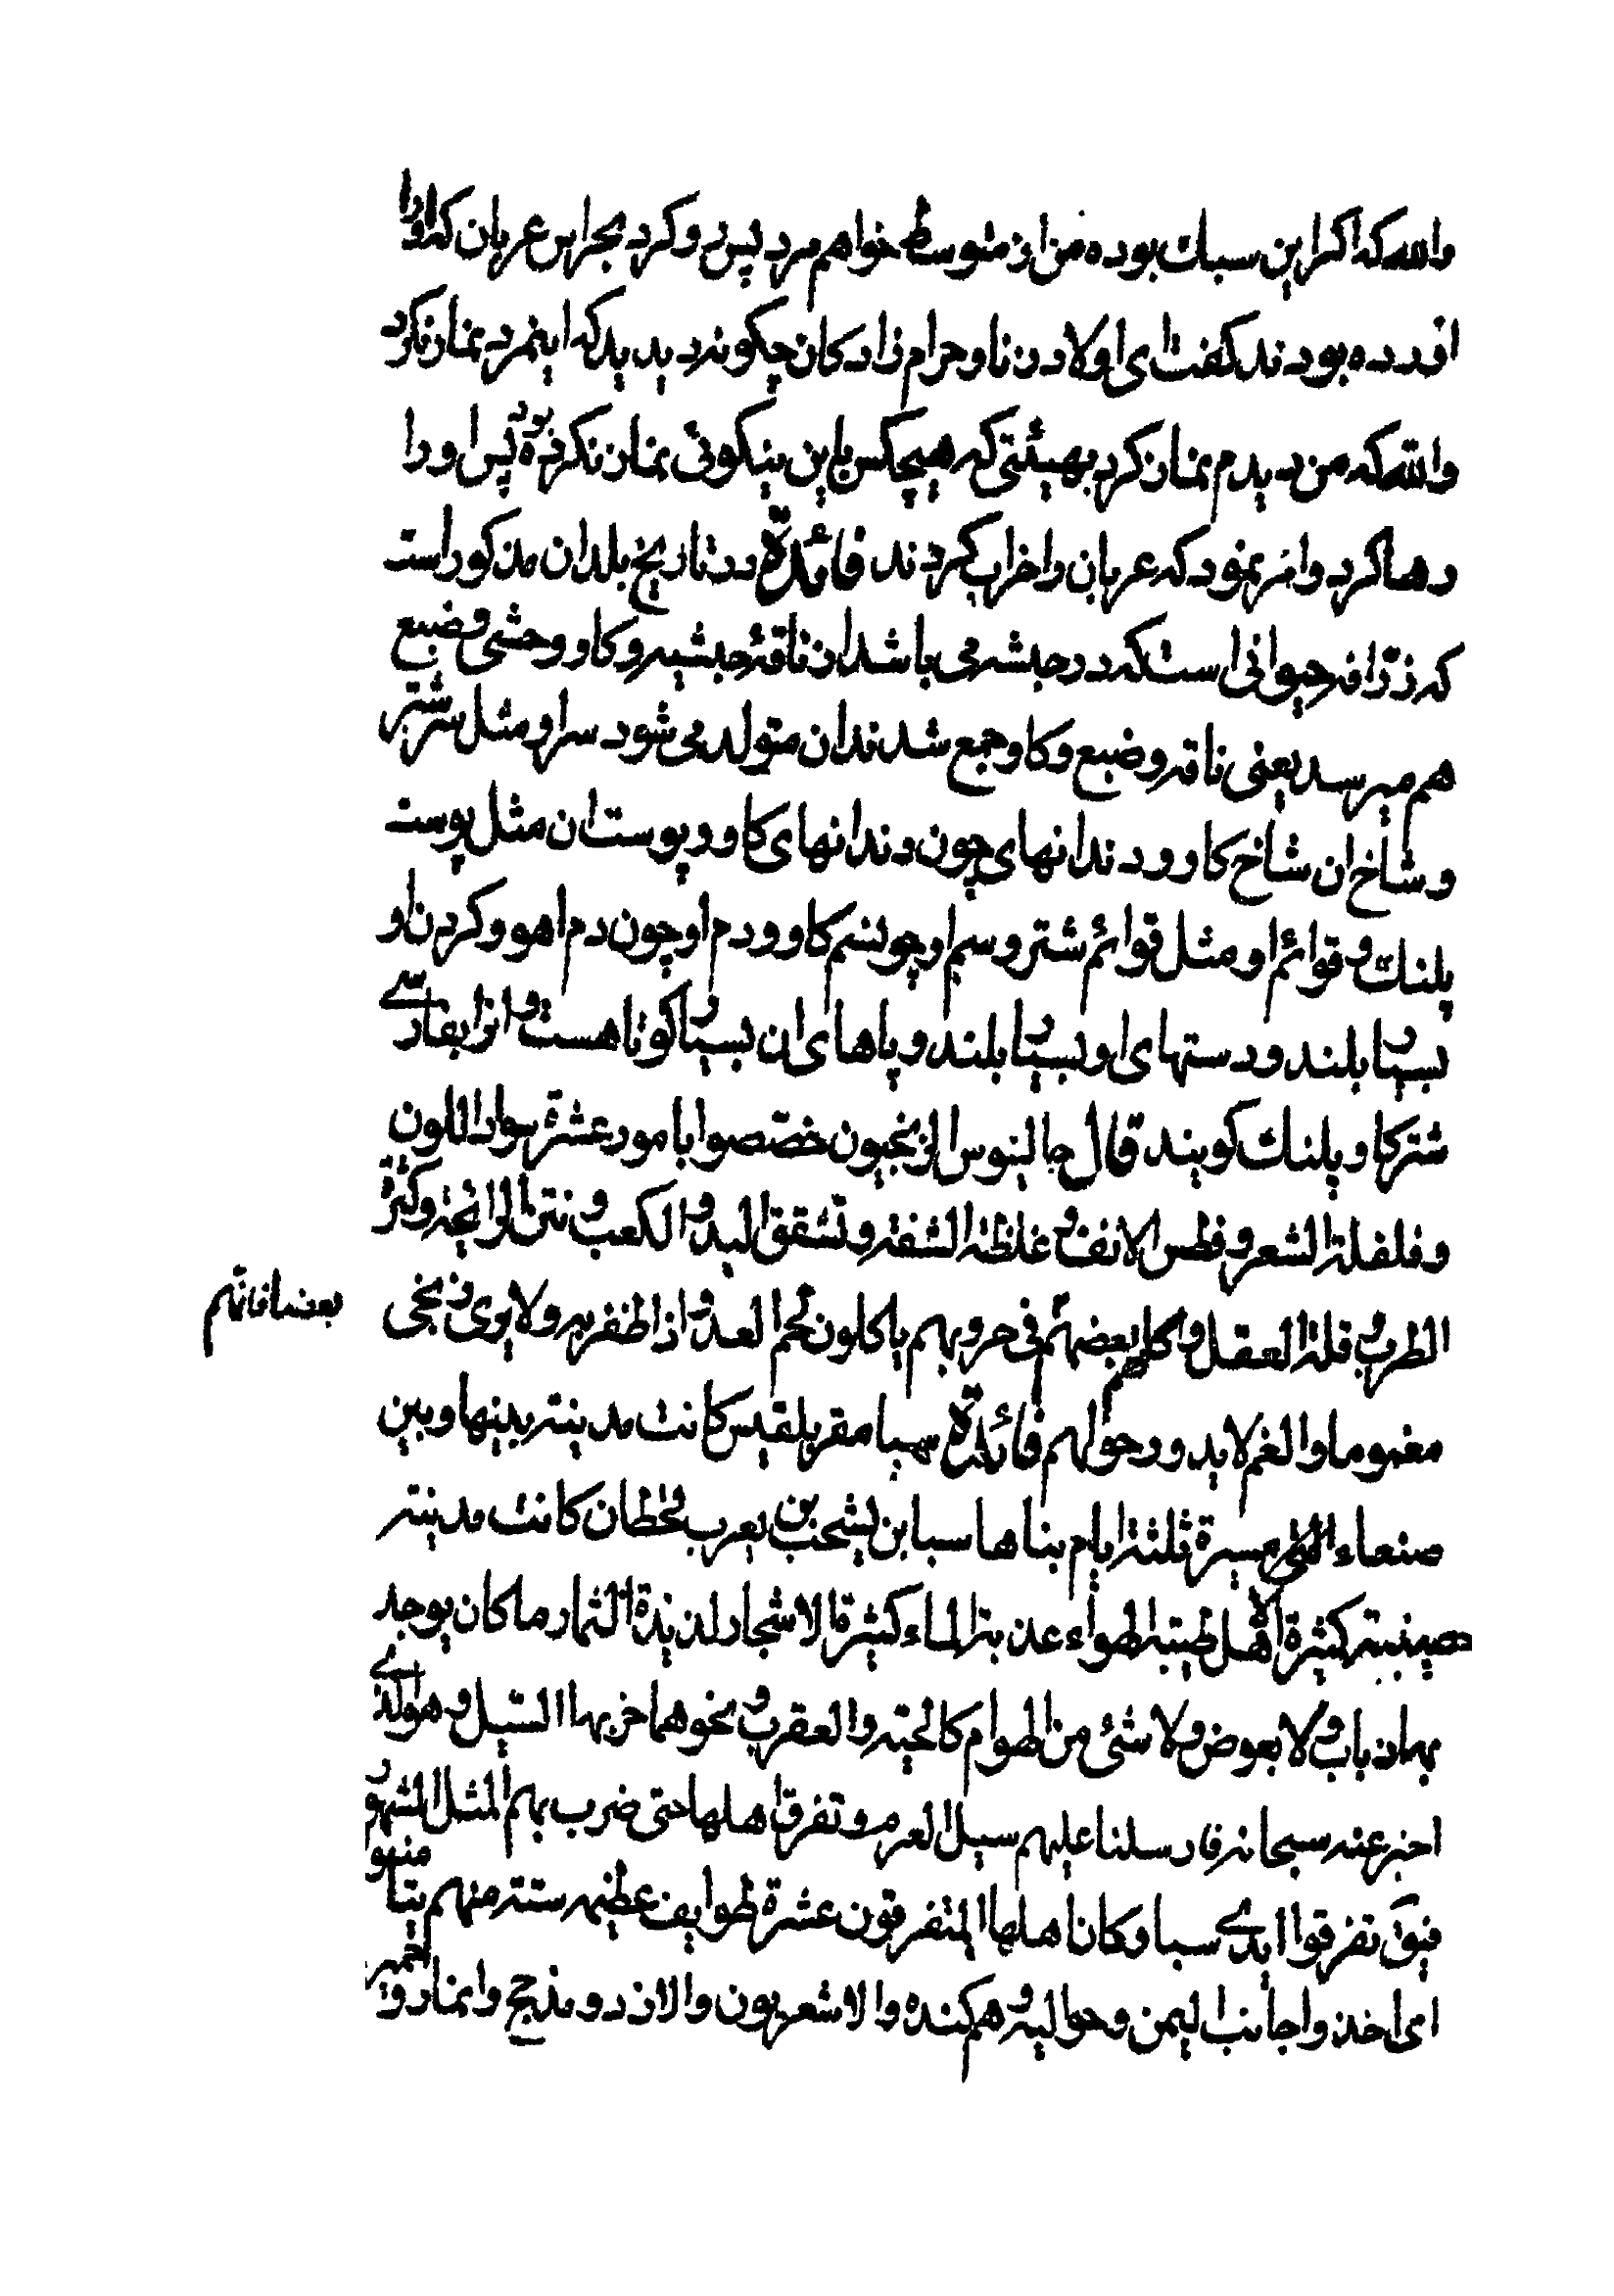 والله که اکر این سبک بوده من از متوسط خواهم مرد پس رو کرد بجرابر عربان که اورا
اورده بودند کفت ای اولاد زنا و حرام زاد کان چکونه دیدید که اینمرد نماز نکرد
والله که من دیدم نماز کرد بهیئتی که هیچکس باین نیکوئی نماز نکرده بود پس اورا
رها کرد وامر نمود که عربان را خراب کردند فائدة در تاریخ بلدان مذکور است
که زرافه حیوانی است که در حبشه می باشد از ناقهٔ حبشیه و کاو وحشی و ضبع
هم میرسد یعنی ناقه و ضبع و کاو جمع شدند ازان متولد می شود سر او مثل سر شتر
و شاخ ان شاخ کاو و دندانهای چون دندانهای کاو و پوست ان مثل پوست
پلنک و قوائم او مثل قوائم شتر و سم او چون سم کاو و دم او چون دم اهو و کردن او
بسیار بلند و دستهای او بسیار بلند و پاهای ان بسیار کوتاهست و انرا بفارسی
شتر کاو پلنک کویند قال جالینوس الزنجیون خصصوا بامور عشرة سواد اللون
و فلفلة الشعر و فطس الانف و غلظة الشفة و تشقق الید و الکعب و نتن الرائحة و کثرة
الطرب و قلة العقل و اکل بعضهم فی حروبهم یاکلون لحم العدو اذا ظفر به ولا یری زنجی
بعضا فانهم
مغموما والغم لا یدور حولهم فائدة سبا مقر بلقیس کانت مدینة بینها و بین
صنعاء الیمن مسیرة ثلثة ایام بناها سبا بن یشحب بن یعرب قحطان کانت مدینة
حصینة کثیرة الاهل طیبة الهواء عذبة الماء کثیرة الاشجار لذیذة الثمار ما کان یوجد
بها ذباب ولا بعوض ولا شئ من الهوام کالحیة والعقرب و نحوهما خربها السیل و هو الذی
اخبر عنه سبحانه فارسلنا علیهم سیل العرم و تفرق اهلها حتی ضرب بهم المثل المشهور
فیق تفرقوا ایدی سبا و کانا هلها المتفرقون عشرة طوایف عظیمه ستة منهم تیامنوا
ای اخذوا جانب الیمن و حوالیه و هم کنده والاشعریون والازد و مذحج وانمار و حمیر